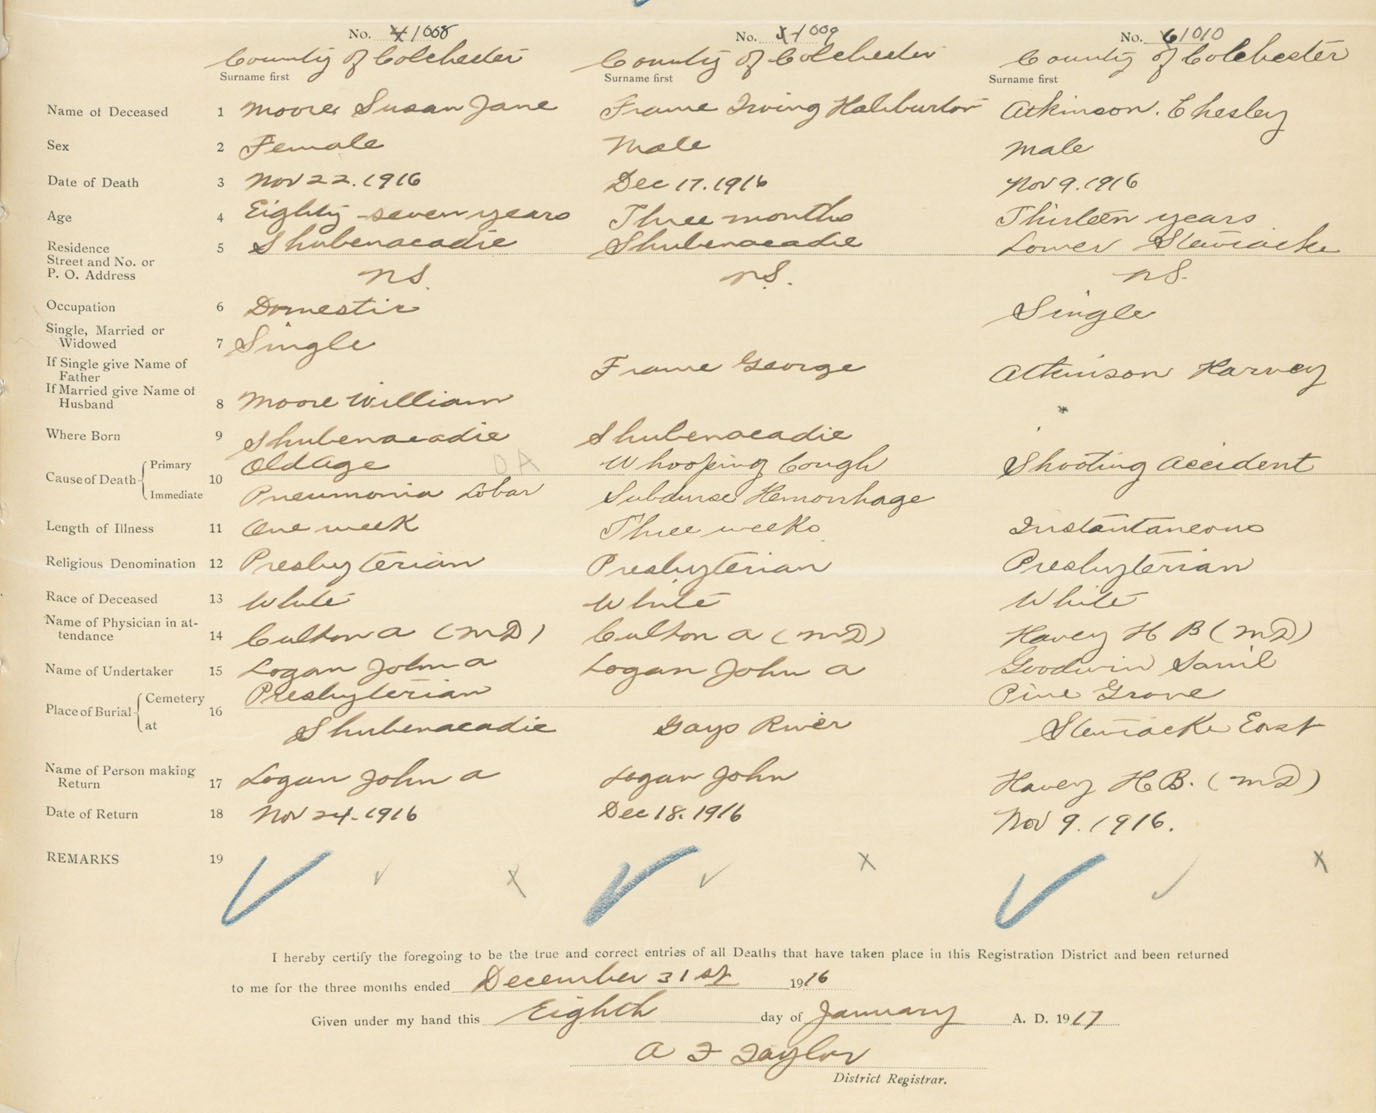 No. 41008 No. 51009 No. 61010
County of Colchester County of Colchester County of Colchester
Surname first Surname first Surname first
Name of Deceased 1 Moore Susan Jane Frame Irving Haliburton Atkinson. Chesley
Sex 2 Female Male Male
Date of Death 3 Nov 22. 1916 Dec 17. 1916 Nov 9. 1916
Age 4 Eighty-seven years Three months Thirteen years
Residence 5 Shubenacadie Shubenacadie Lower Stewiacke
Street and No. or
P. O. Address NS. NS. NS.
Occupation 6 Domestic Single
Single, Married or
Widowed 7 Single
If Single give Name of
Father Frame George Atkinson Harvey
If Married give Name of
Husband 8 Moore William
Where Born 9 Shubenacadie Shubenacadie
Cause of Death Primary 10 Old Age OA Whooping Cough Shooting Accident
Immediate Pneumonia Lobar Hemorrhage
Length of Illness 11 One week Three weeks Instantaneous
Religious Denomination 12 Presbyterian Presbyterian Presbyterian
Race of Deceased 13 White White White
Name of Physician in at-
tendance 14 Culton A (MD) Culton A (MD) Havey H B (MD)
Name of Undertaker 15 Logan John A Logan John A Goodwin Saml
Place of Burial Cemetery 16 Presbyterian Pine Grove
at Shubenacadie Gays River Stewiacke East
Name of Person making
Return 17 Logan John A Logan John Havey H B. (MD)
Date of Return 18 Nov 24. 1916 Dec 18. 1916 Nov 9. 1916.
REMARKS 19
I hereby certify the foregoing to be the true and correct entries of all Deaths that have taken place in this Registration District and been returned
to me for the three months ended December 31st 1916
Given under my hand this Eighth day of January A. D. 1917
A F Taylor
District Registrar.